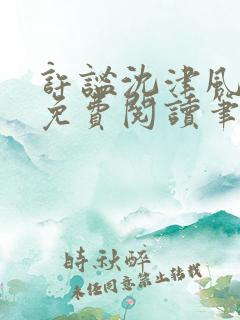 許謐沈津風
免費閱讀筆
時秋醉
未经同意禁止转载